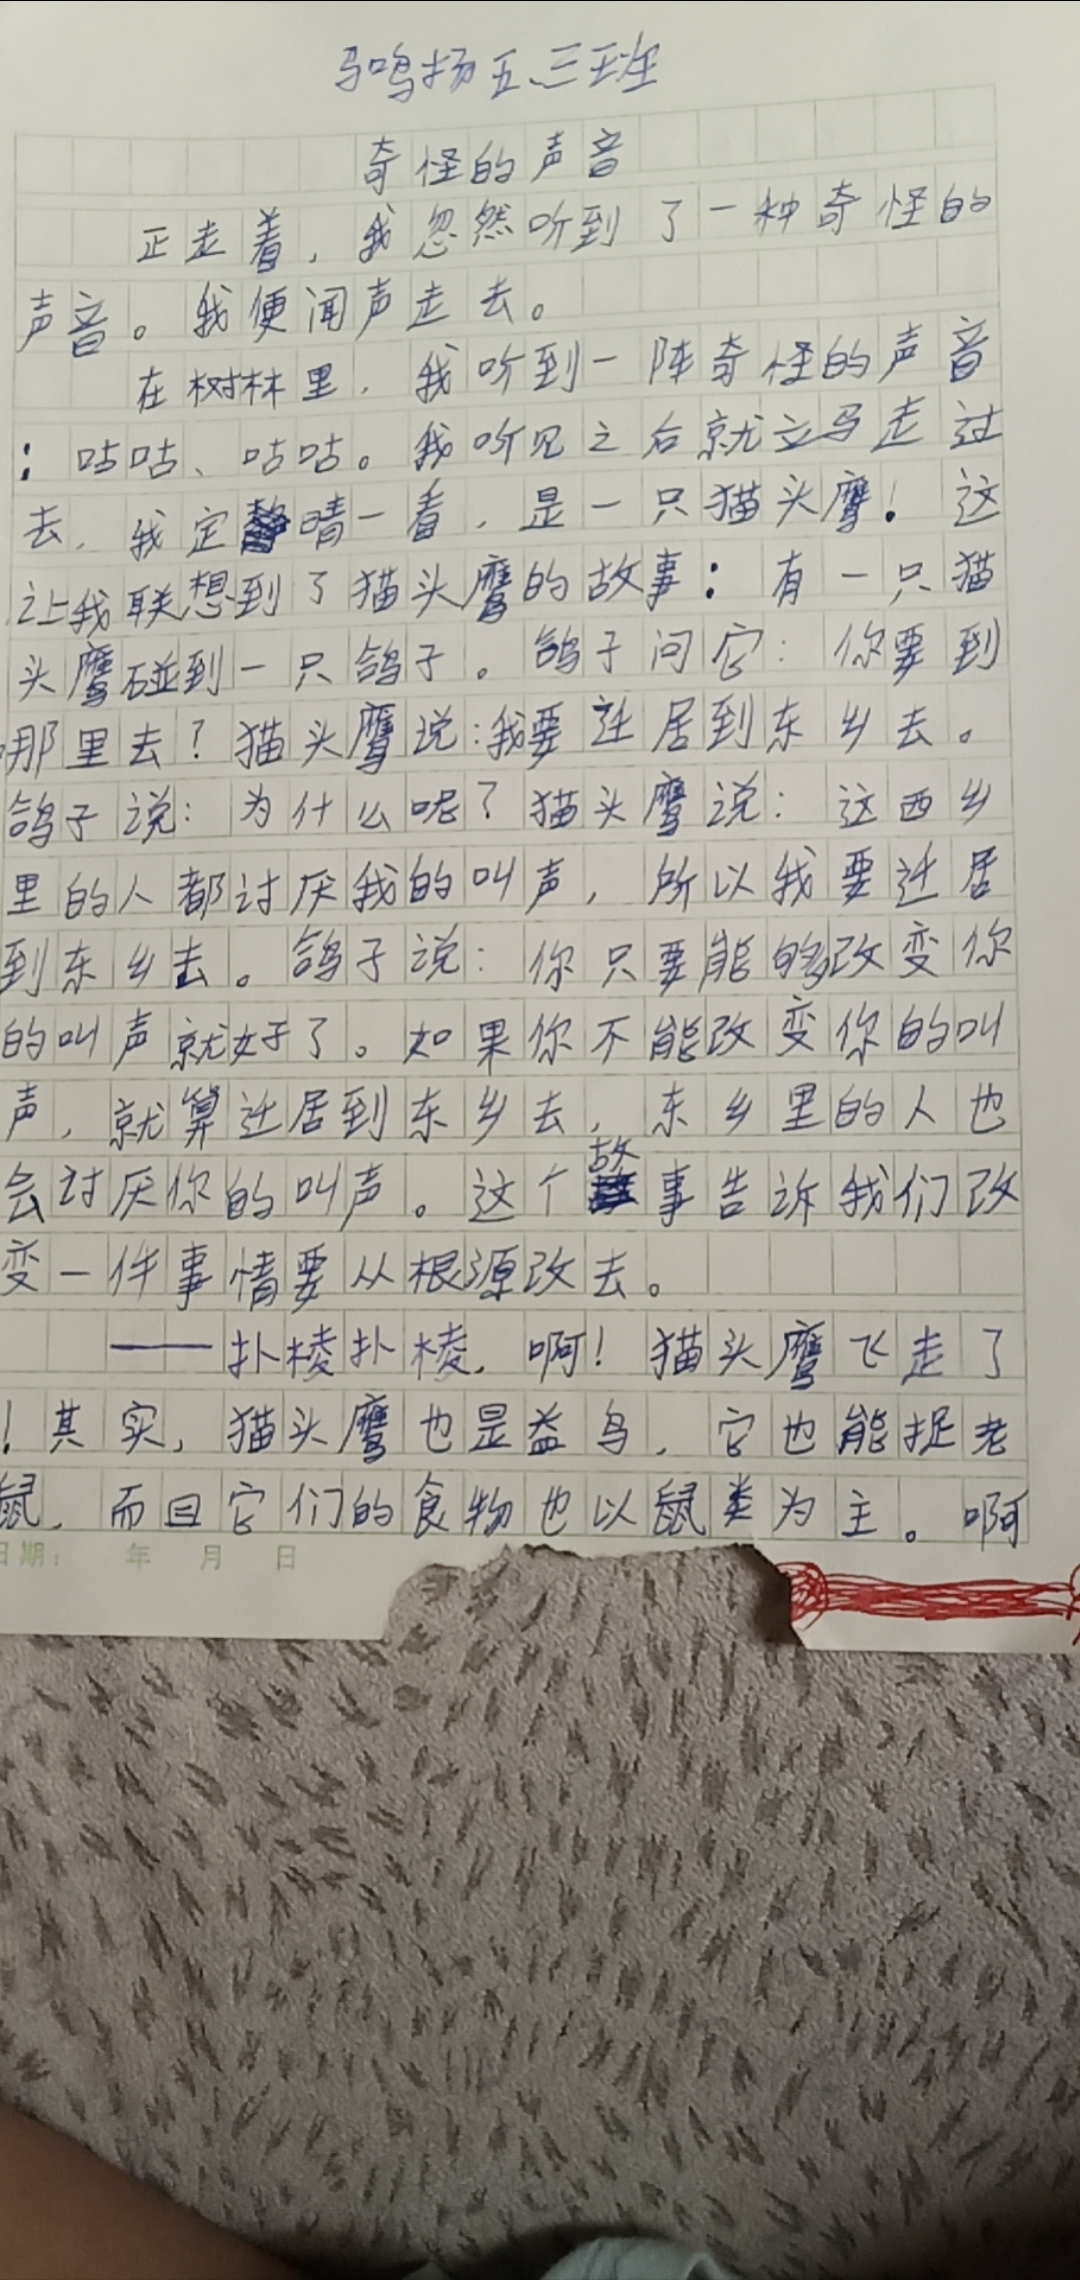 马鸣扬五、三班
奇怪的声音
正走着，我忽然听到了一种奇怪的
声音。我便闻声走去。
在树林里，我听到一阵奇怪的声音
：咕咕、咕咕。我听见之后就立马走过
去，我定晴一看，是一只猫头鹰！这
让我联想到了猫头鹰的故事：有一只猫
头鹰碰到一只鸽子。鸽子问它：你要到
哪里去？猫头鹰说：我要迁居到东乡去。
鸽子说：为什么呢？猫头鹰说：这西乡
里的人都讨厌我的叫声，所以我要迁居
到东乡去。鸽子说：你只要能够改变你
的叫声就好了。如果你不能改变你的叫
声，就算迁居到东乡去，东乡里的人也
会讨厌你的叫声。这个故事告诉我们改
变一件事情要从根源改去。
——扑棱扑棱，啊！猫头鹰飞走了
！其实，猫头鹰也是益鸟，它也能捉老
鼠，而且它们的食物也以鼠类为主。啊
日期： 年 月 日